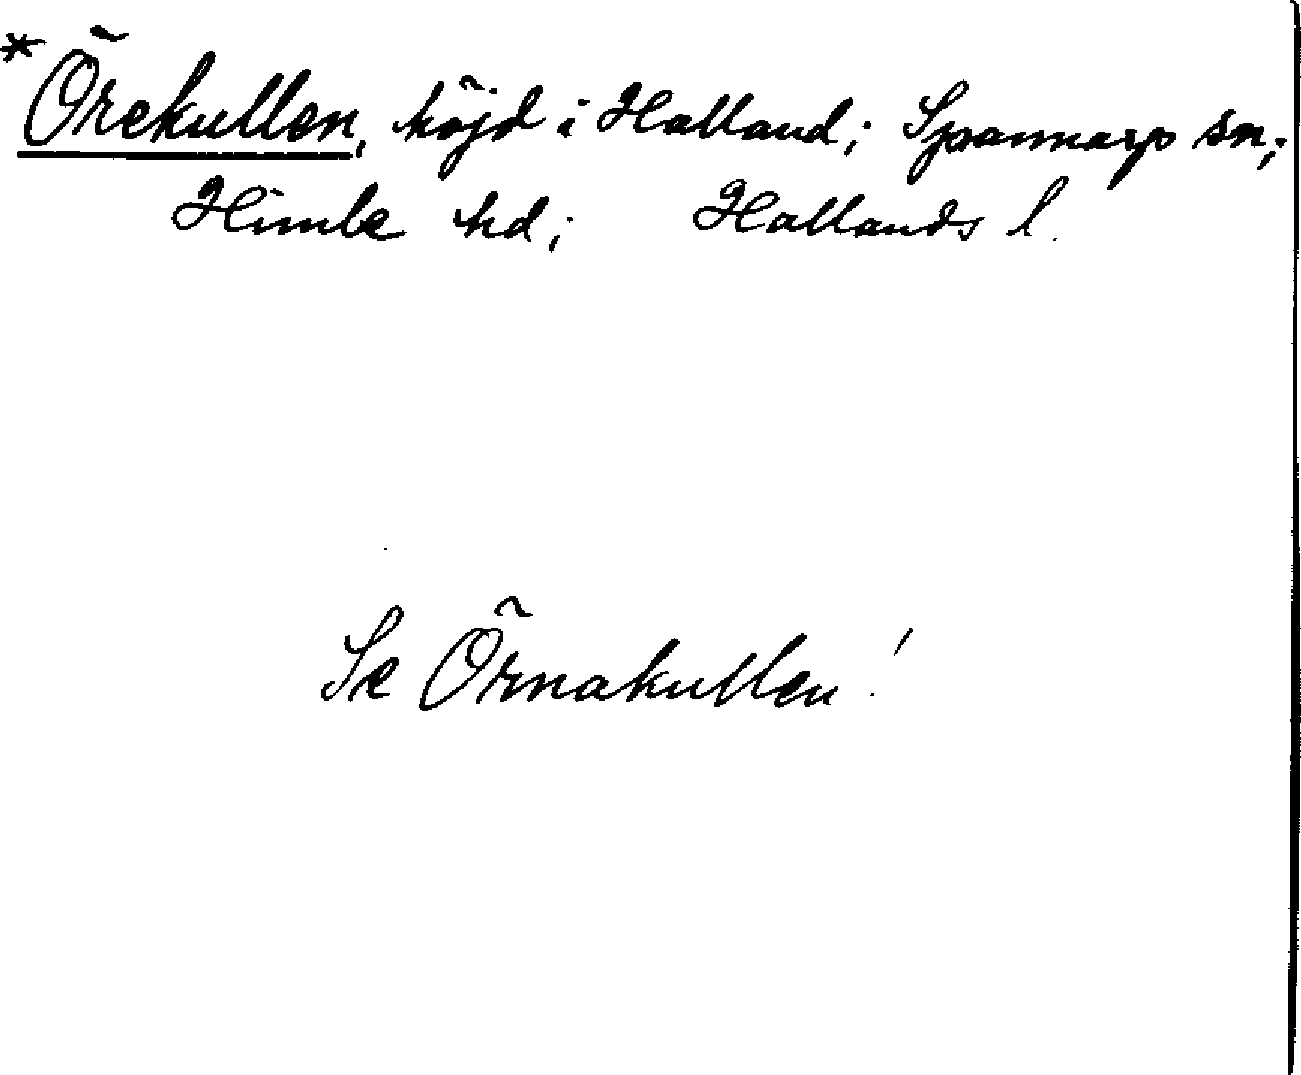 *Örekullen, höjd i Halland; Spannarp sn;
Himle hd; Hallands l.
Se Örnakullen!